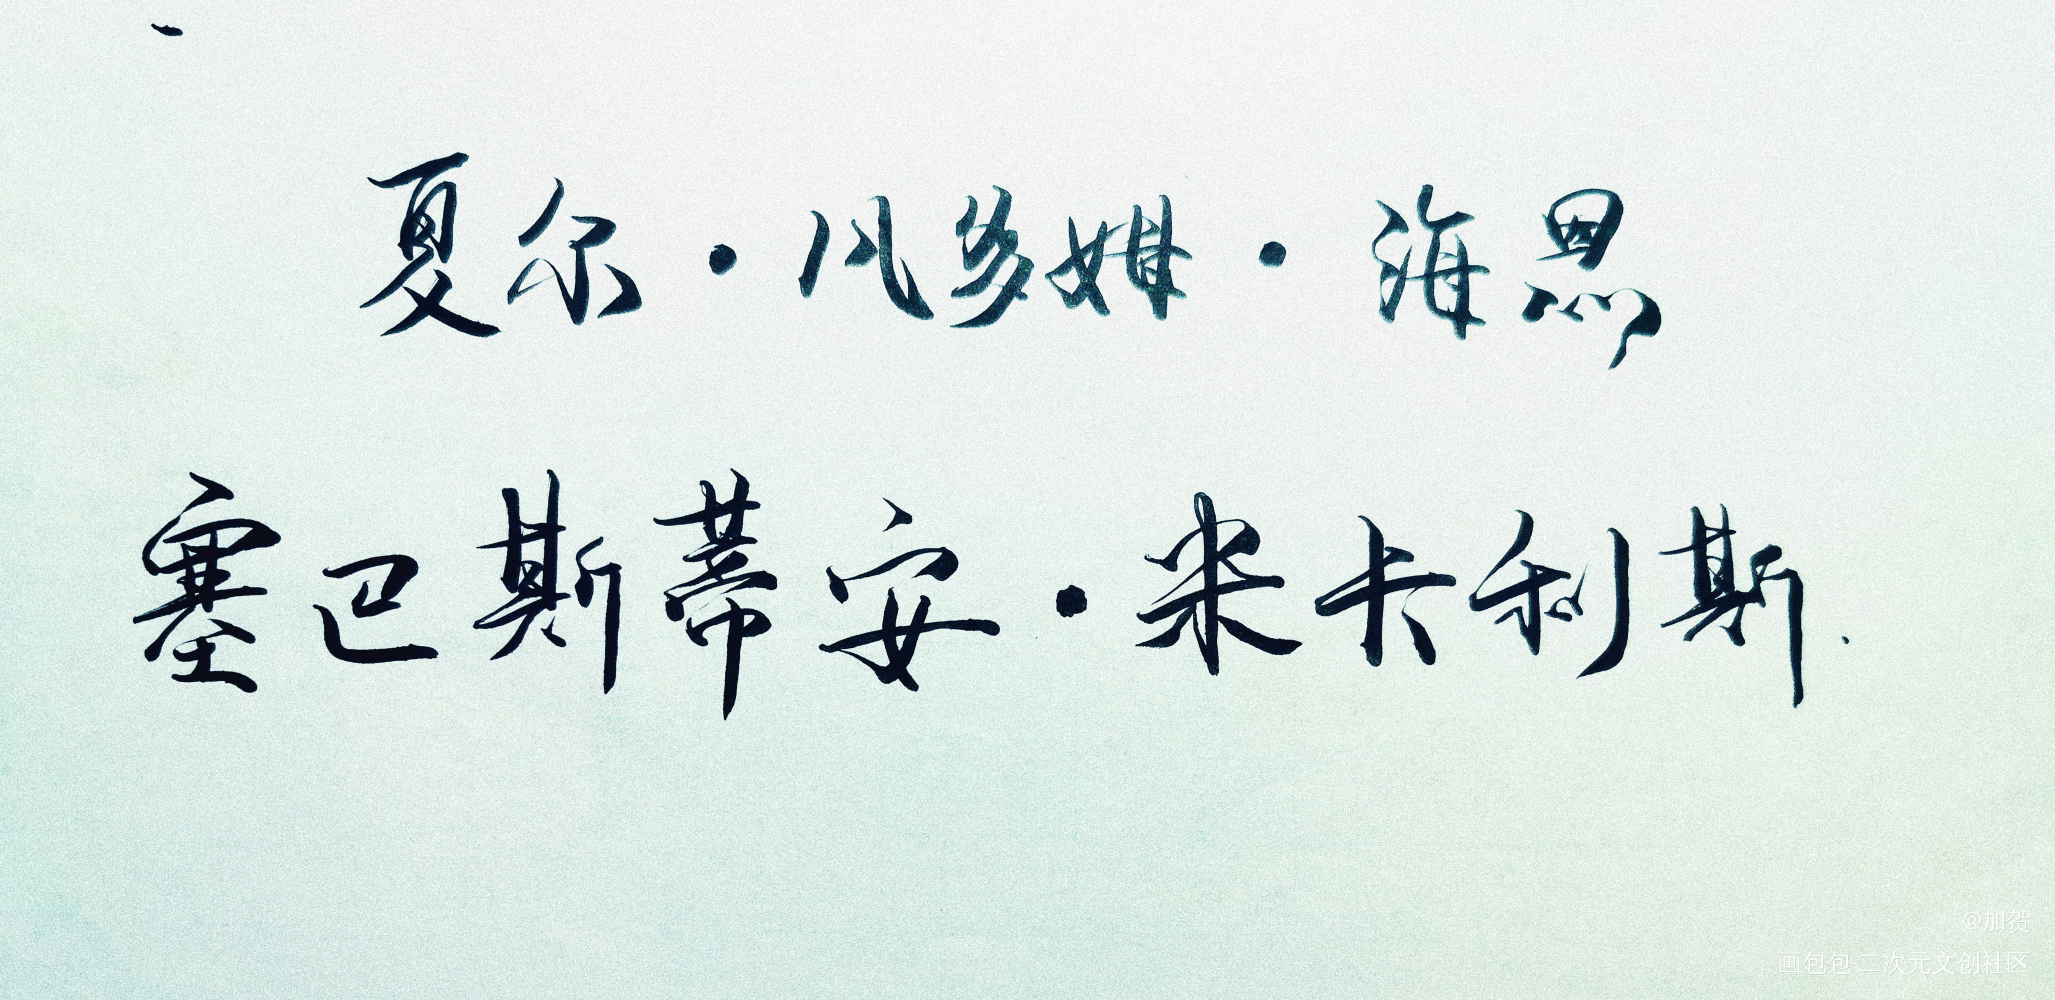 夏尔·凡多姆·海恩
塞巴斯蒂安·米卡利斯.
@加贺
画包包·二次元文创社区